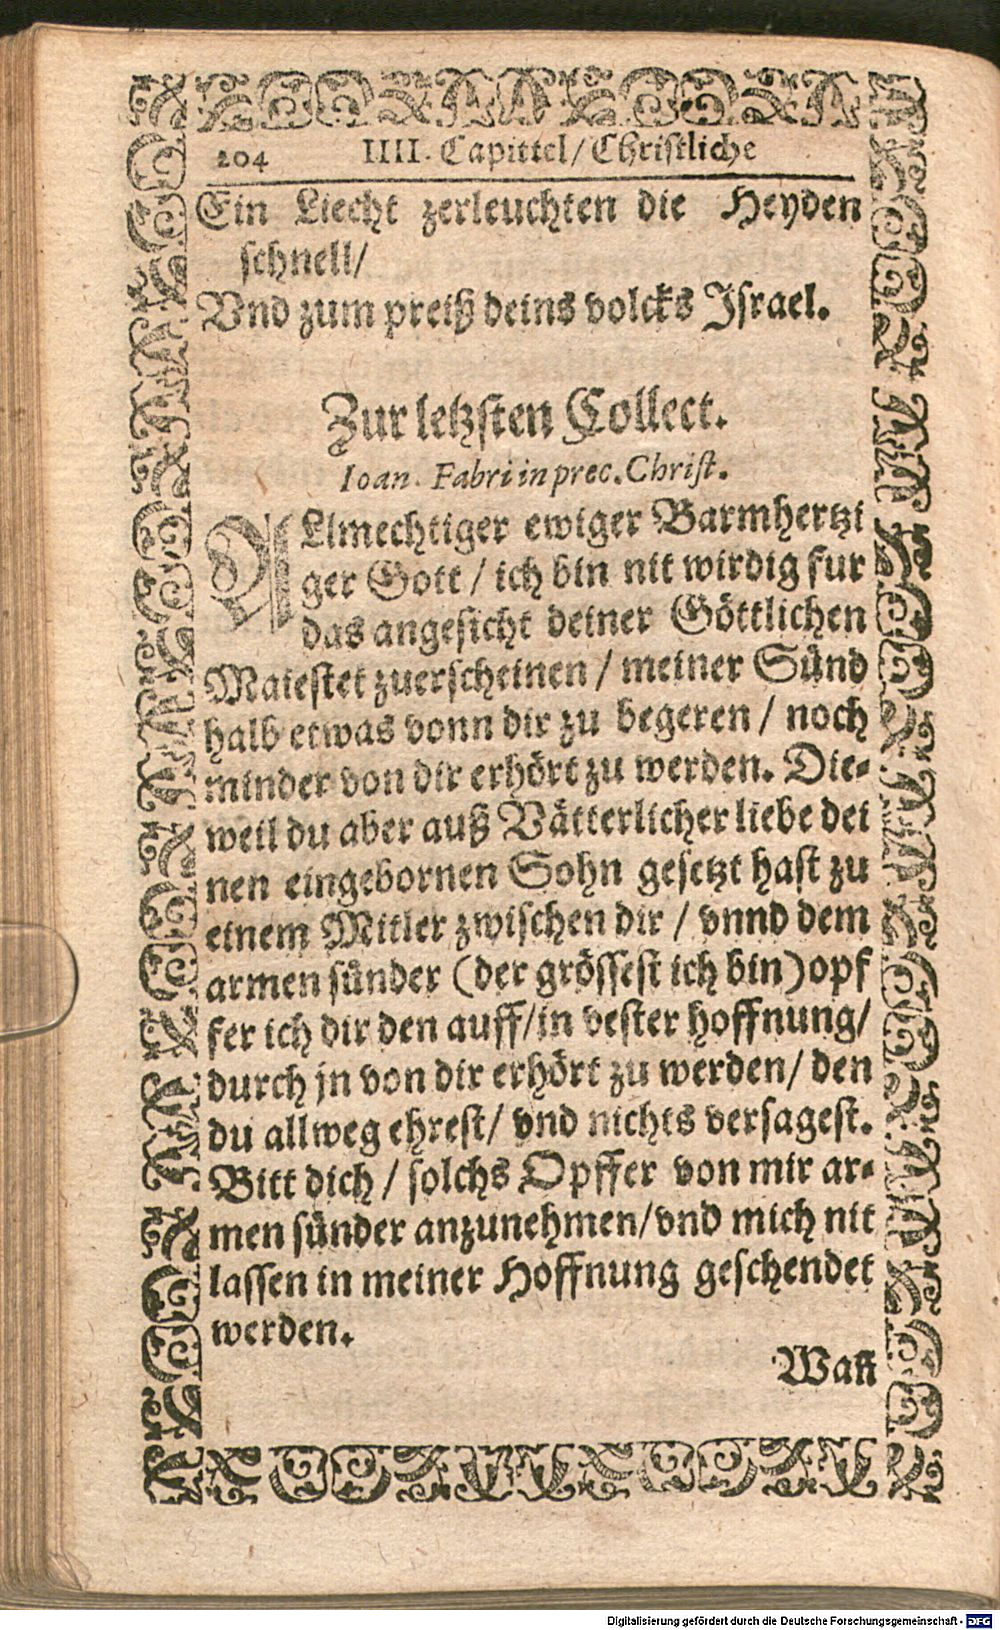 204 IIII. Capittel/Christliche
Ein Liecht zerleuchten die Heyden
schnell/
Vnd zum preiß deins volcks Israel.
Zur letzsten Collect.
Ioan. Fabri in prec. Christ.
ALlmechtiger ewiger Barmhertzi
ger Gott / ich bin nit wirdig fur
das angesicht deiner Göttlichen
Maiestet zuerscheinen / meiner Sünd
halb etwas vonn dir zu begeren / noch
minder von dir erhört zu werden. Die-
weil du aber auß Vätterlicher liebe dei
nen eingebornen Sohn gesetzt hast zu
einem Mitler zwischen dir / vnnd dem
armen sünder (der grössest ich bin) opf
fer ich dir den auff/in vester hoffnung/
durch jn von dir erhört zu werden/ den
du allweg ehrest/ vnd nichts versagest.
Bitt dich / solchs Opffer von mir ar-
men sünder anzunehmen/vnd mich nit
lassen in meiner Hoffnung geschendet
werden.
Wañ
Digitalisierung gefördert durch die Deutsche Forschungsgemeinschaft - DFG